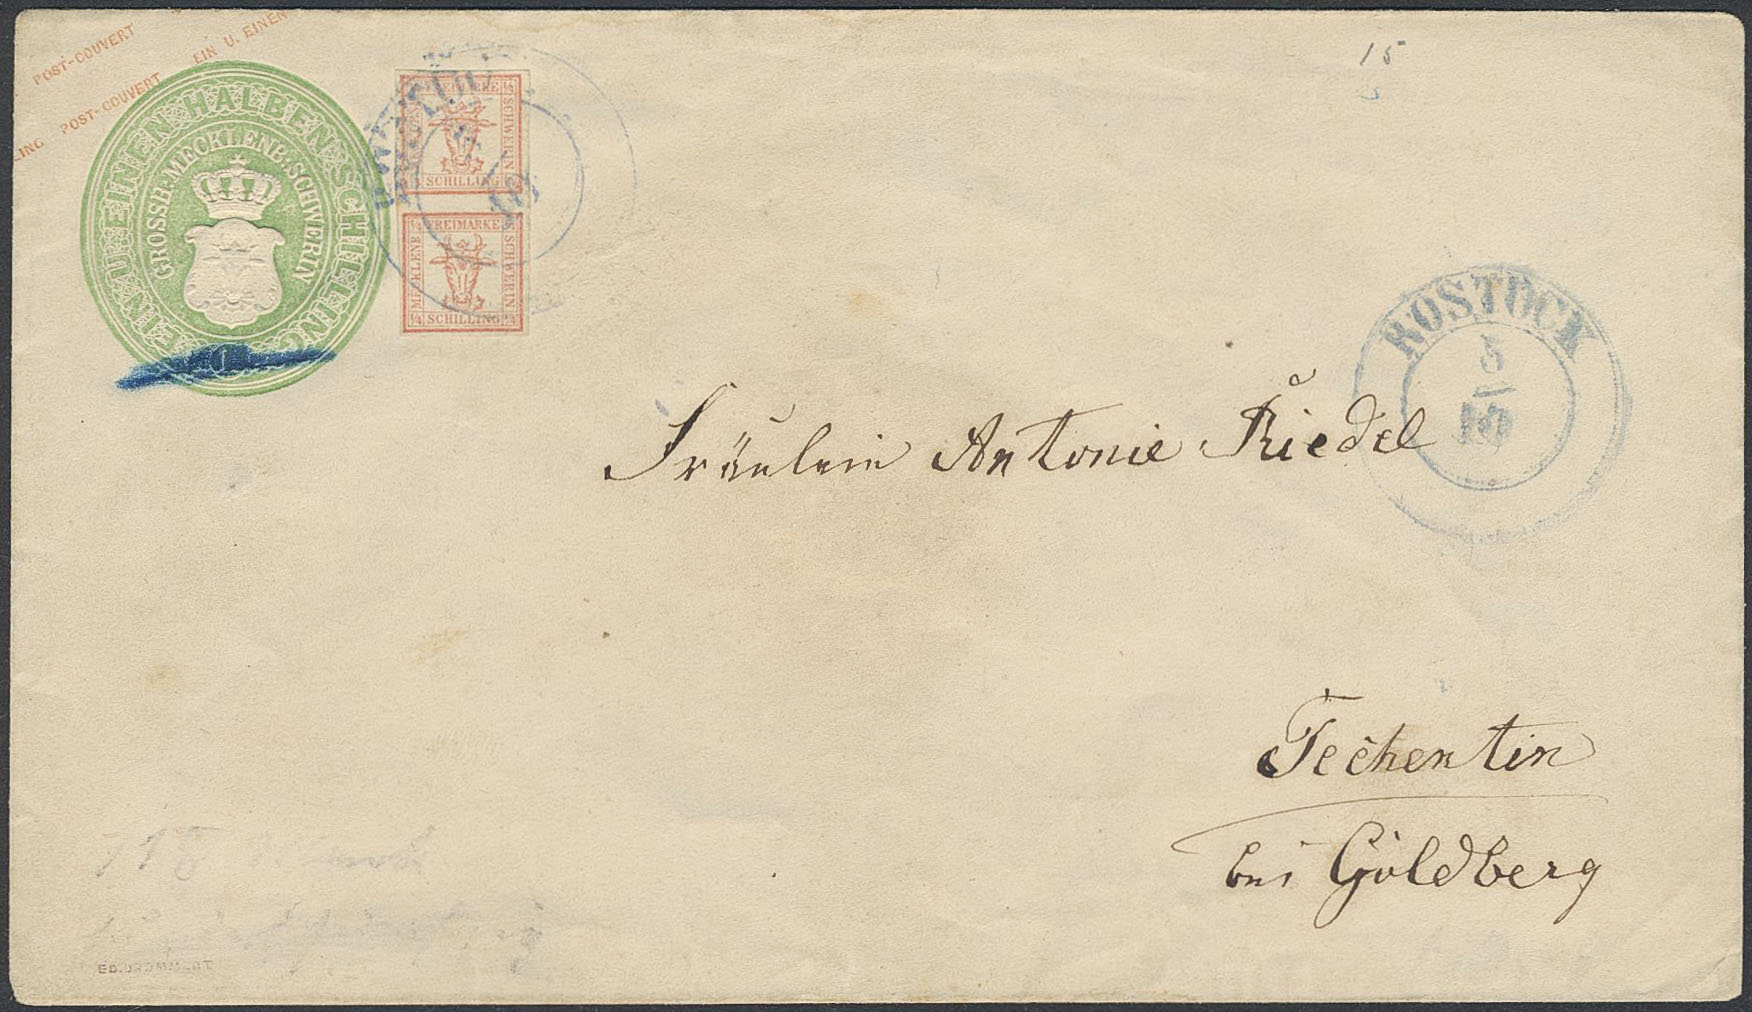 POST-COUVERT
EIN U. EINEN
LING POST-COUVERT
EIN U. EINEN HALBEN SCHILLING
GROSSH. MECKLENB. SCHWERIN
SCHWERIN
SCHILLING
1/4 FREIMARKE
MECKLENB
SCHWERIN
1/4 SCHILLING 1/4
15
ROSTOCK
5
10
ROSTOCK
Fräulein Antonie Riedel
Techentin
bei Goldberg
ED. DROMMERT